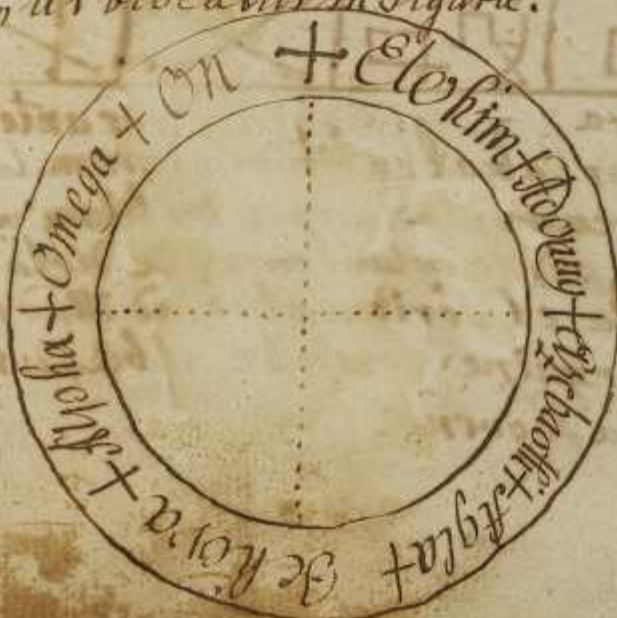 in figura.
+ Elohim + Adonay + Zebaoth + Agla + Jehova + Alpha + Omega + On